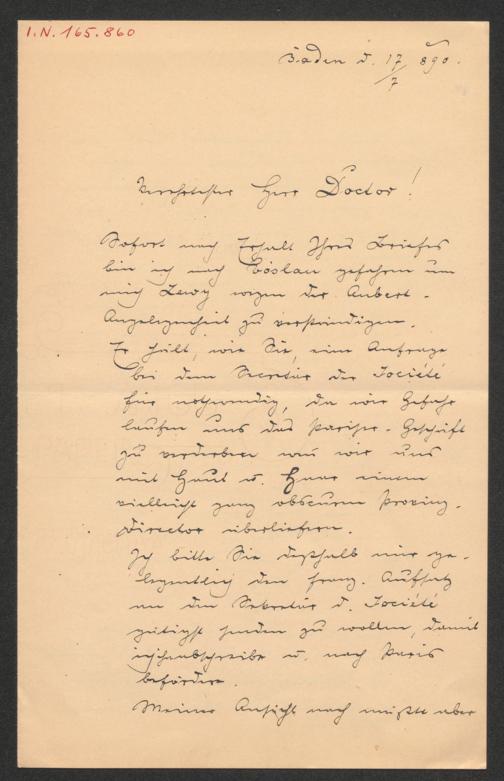 I.N. 165.860
Baden d. 17/7 890.
Verehrtester Herr Doctor!
Sofort nach Erhalt Ihres Briefes
bin ich nach Vöslau gefahren um
mich Lewy wegen der Aubert-
Angelegenheit zu verständigen.
Er hält, wie Sie, eine Anfrage
bei dem Secretär der Société
für nothwendig, da wir Gefahr
laufen uns das Pariser-Geschäft
zu verderben wenn wir uns
mit Haut u. Haar einem
vielleicht ganz obscuren Provinz-
Director überliefern.
Ich bitte Sie deßhalb mir ge-
legentlich den franz. Aufsatz
an den Sekretär d. Société
gütigst senden zu wollen, damit
ich ihn abschreibe u. nach Paris
befördere.
Meiner Ansicht nach müßte aber